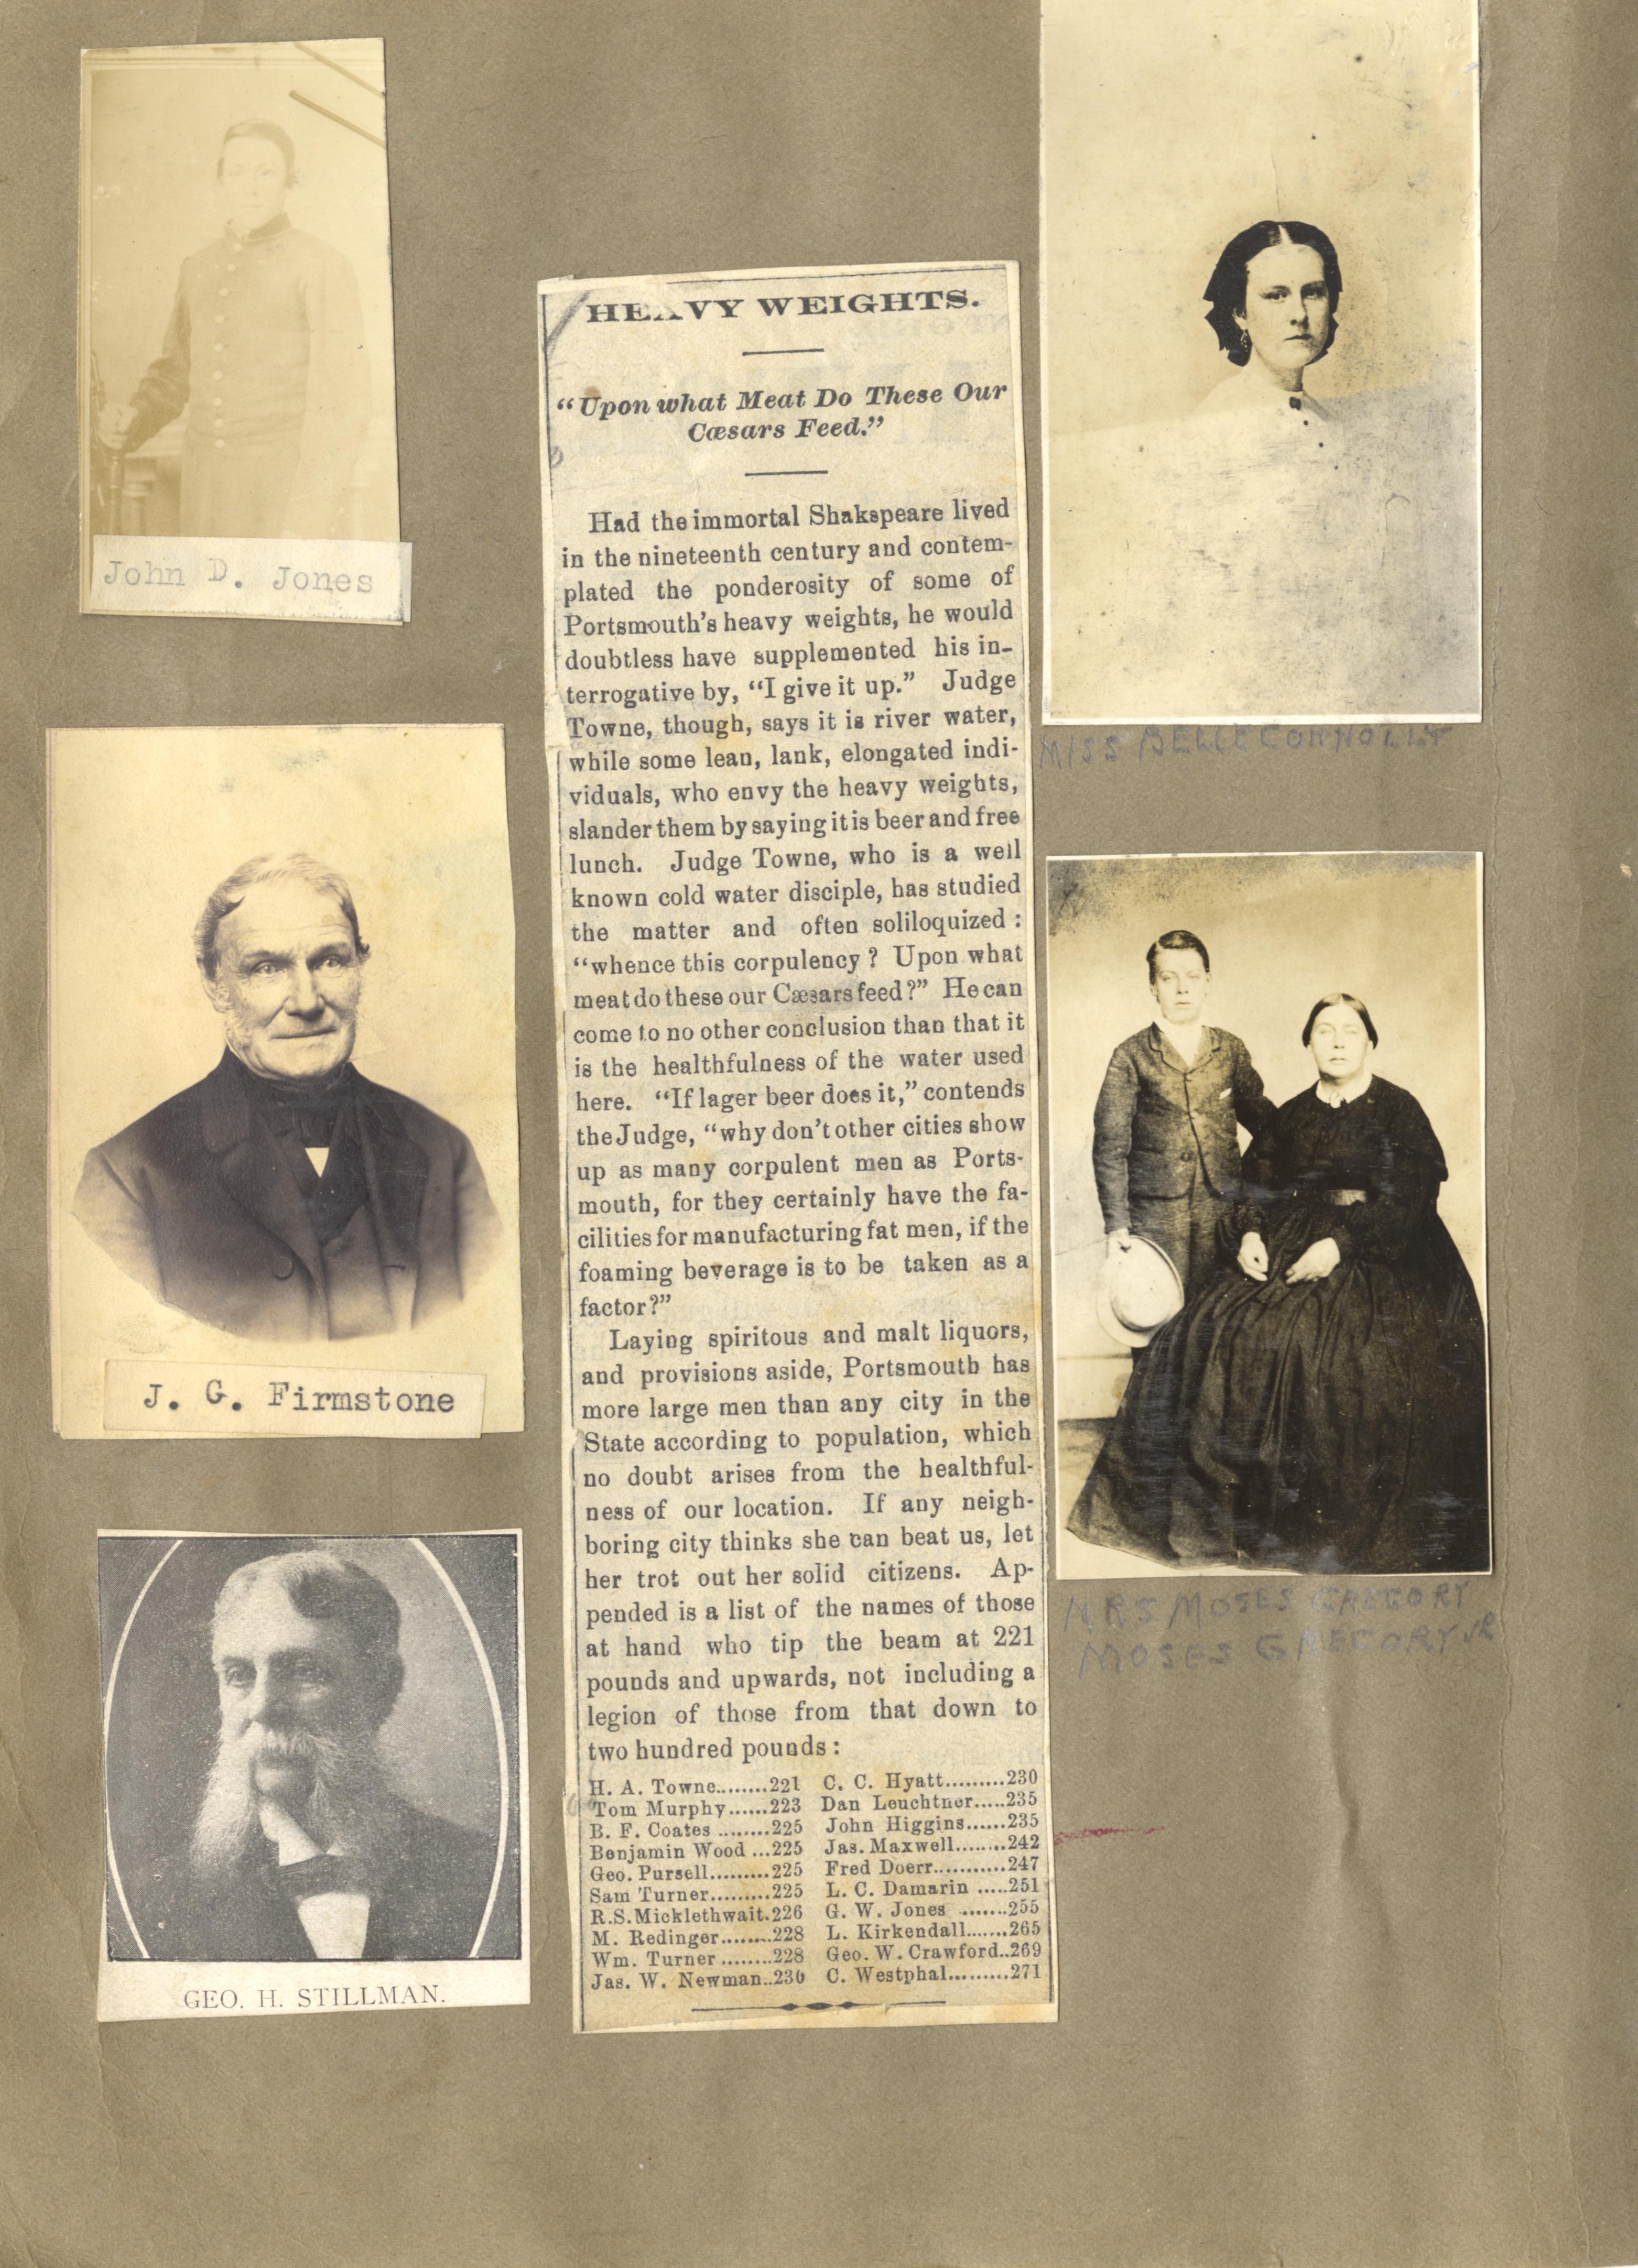 John D. Jones
J. G. Firmstone
GEO. H. STILLMAN.
HEAVY WEIGHTS.
“Upon what Meat Do These Our
Cæsars Feed.”
Had the immortal Shakspeare lived
in the nineteenth century and contem-
plated the ponderosity of some of
Portsmouth's heavy weights, he would
doubtless have supplemented his in-
terrogative by, “I give it up.” Judge
Towne, though, says it is river water,
while some lean, lank, elongated indi-
viduals, who envy the heavy weights,
slander them by saying it is beer and free
lunch. Judge Towne, who is a well
known cold water disciple, has studied
the matter and often soliloquized :
“whence this corpulency ? Upon what
meat do these our Cæsars feed?” He can
come to no other conclusion than that it
is the healthfulness of the water used
here. “If lager beer does it,” contends
the Judge, “why don't other cities show
up as many corpulent men as Ports-
mouth, for they certainly have the fa-
cilities for manufacturing fat men, if the
foaming beverage is to be taken as a
factor?”
Laying spiritous and malt liquors,
and provisions aside, Portsmouth has
more large men than any city in the
State according to population, which
no doubt arises from the healthful-
ness of our location. If any neigh-
boring city thinks she can beat us, let
her trot out her solid citizens. Ap-
pended is a list of the names of those
at hand who tip the beam at 221
pounds and upwards, not including a
legion of those from that down to
two hundred pounds :
H. A. Towne........221 C. C. Hyatt.........230
Tom Murphy......223 Dan Leuchtner.....235
B. F. Coates ........225 John Higgins......235
Benjamin Wood ...225 Jas. Maxwell........242
Geo. Pursell.........225 Fred Doerr...........247
Sam Turner.........225 L. C. Damarin .....251
R.S.Micklethwait.226 G. W. Jones .......255
M. Redinger........228 L. Kirkendall.......265
Wm. Turner ........228 Geo. W. Crawford..269
Jas. W. Newman..230 C. Westphal.........271
MISS BELLE CONNOLLY
MRS MOSES GREGORY
MOSES GREGORY JR